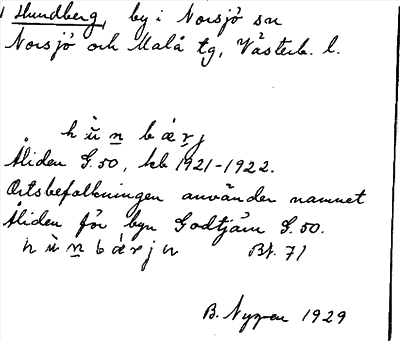 Hundberg, by i Norsjö sn
Norsjö och Malå tg, Västerb. l.
h ù n b æ r j
Åliden G.50, kb 1921-1922.
Ortsbefolkningen använder namnet
Åliden för byn Godtjärn G.50.
h ù n b á r j n Bl. 71
B. Nygren 1929